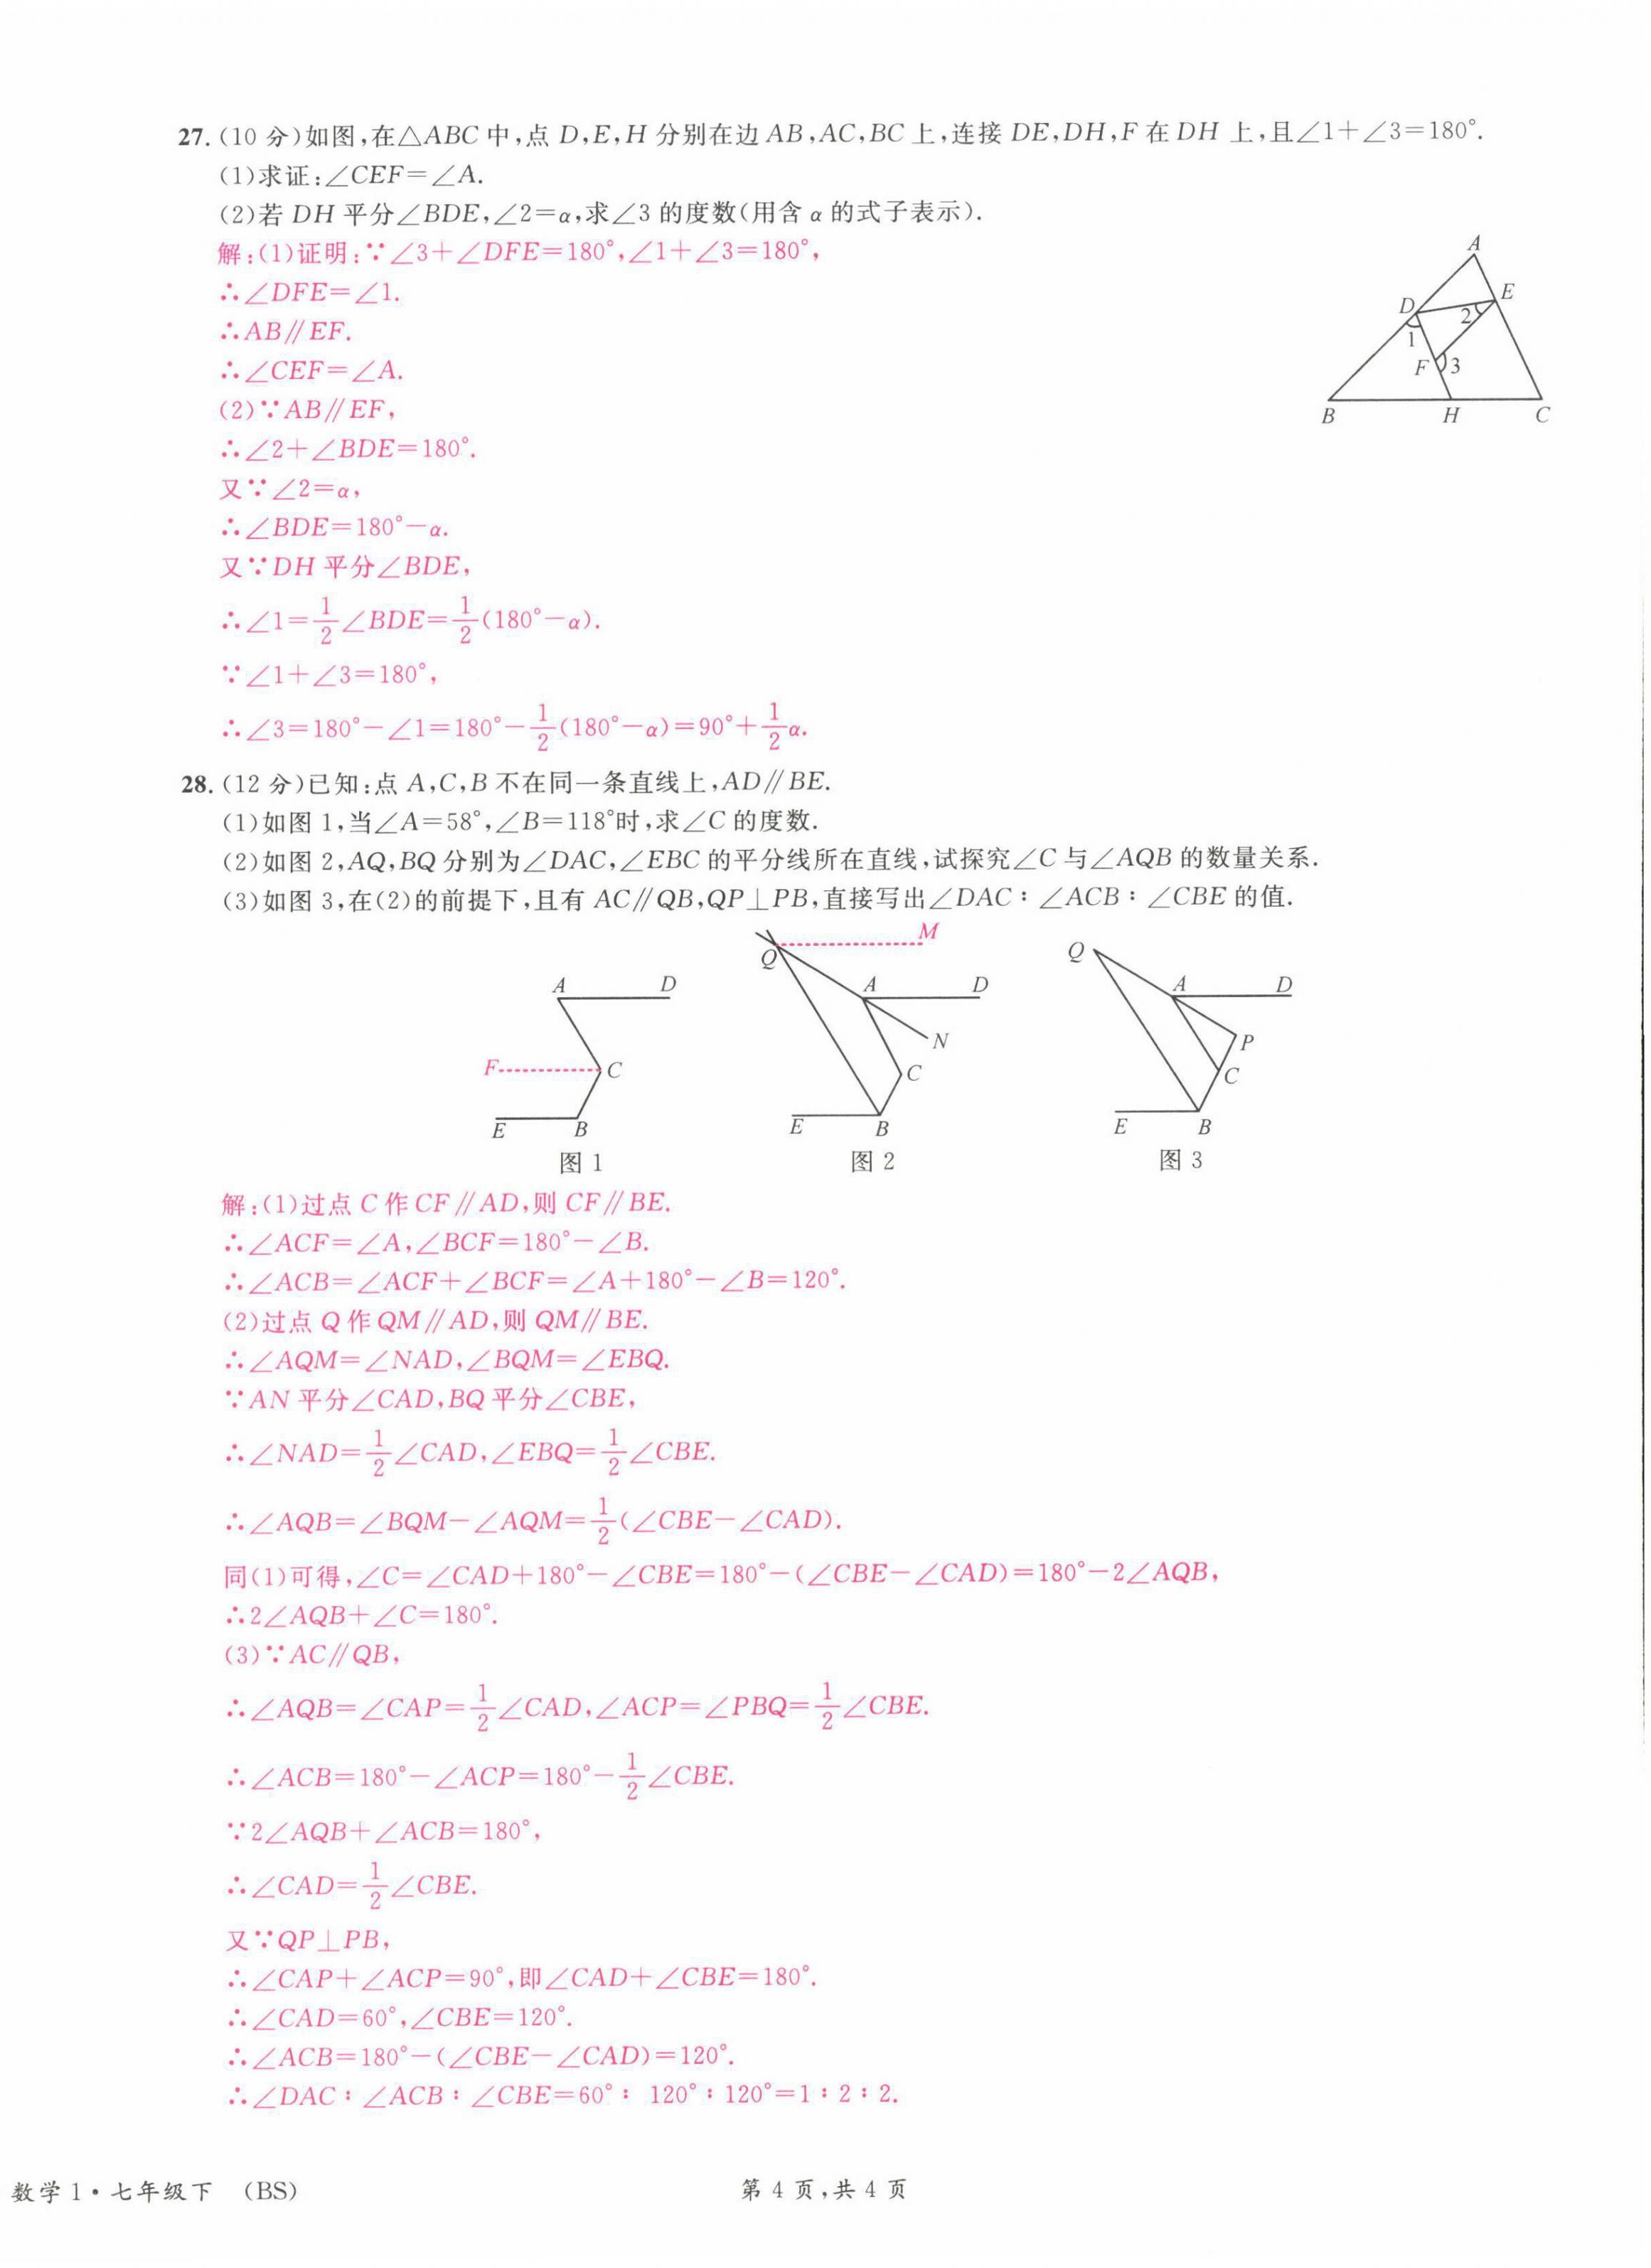 27. (10 分)如图,在△ABC 中,点 D,E,H 分别在边 AB,AC,BC 上,连接 DE,DH,F 在 DH 上,且∠1+∠3=180°.
(1)求证:∠CEF=∠A.
(2)若 DH 平分∠BDE,∠2=α,求∠3 的度数(用含 α 的式子表示).
解:(1)证明:∵∠3+∠DFE=180°,∠1+∠3=180°,
∴∠DFE=∠1.
∴AB∥EF.
∴∠CEF=∠A.
(2)∵AB∥EF,
∴∠2+∠BDE=180°.
又∵∠2=α,
∴∠BDE=180°-α.
又∵DH 平分∠BDE,
∴∠1=1/2∠BDE=1/2(180°-α).
∵∠1+∠3=180°,
∴∠3=180°-∠1=180°-1/2(180°-α)=90°+1/2α.
A
D
E
2
1
F
3
B
H
C
28. (12 分)已知:点 A,C,B 不在同一条直线上,AD∥BE.
(1)如图 1,当∠A=58°,∠B=118°时,求∠C 的度数.
(2)如图 2,AQ,BQ 分别为∠DAC,∠EBC 的平分线所在直线,试探究∠C 与∠AQB 的数量关系.
(3)如图 3,在(2)的前提下,且有 AC∥QB,QP⊥PB,直接写出∠DAC∶∠ACB∶∠CBE 的值.
A
D
F
C
E
B
图 1
M
Q
A
D
N
C
E
B
图 2
Q
A
D
P
C
E
B
图 3
解:(1)过点 C 作 CF∥AD,则 CF∥BE.
∴∠ACF=∠A,∠BCF=180°-∠B.
∴∠ACB=∠ACF+∠BCF=∠A+180°-∠B=120°.
(2)过点 Q 作 QM∥AD,则 QM∥BE.
∴∠AQM=∠NAD,∠BQM=∠EBQ.
∵AN 平分∠CAD,BQ 平分∠CBE,
∴∠NAD=1/2∠CAD,∠EBQ=1/2∠CBE.
∴∠AQB=∠BQM-∠AQM=1/2(∠CBE-∠CAD).
同(1)可得,∠C=∠CAD+180°-∠CBE=180°-(∠CBE-∠CAD)=180°-2∠AQB,
∴2∠AQB+∠C=180°.
(3)∵AC∥QB,
∴∠AQB=∠CAP=1/2∠CAD,∠ACP=∠PBQ=1/2∠CBE.
∴∠ACB=180°-∠ACP=180°-1/2∠CBE.
∵2∠AQB+∠ACB=180°,
∴∠CAD=1/2∠CBE.
又∵QP⊥PB,
∴∠CAP+∠ACP=90°,即∠CAD+∠CBE=180°.
∴∠CAD=60°,∠CBE=120°.
∴∠ACB=180°-(∠CBE-∠CAD)=120°.
∴∠DAC∶∠ACB∶∠CBE=60°∶120°∶120°=1∶2∶2.
数学 1·七年级下 (BS)
第 4 页,共 4 页